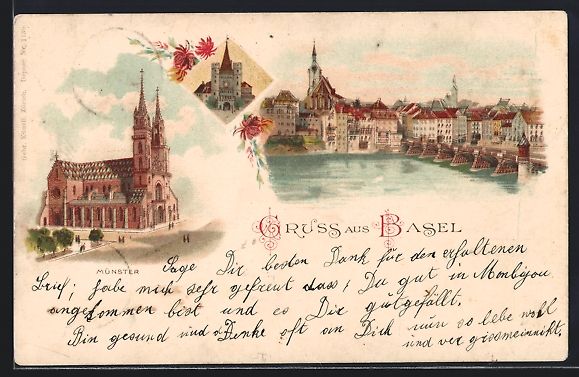 Gebr. Künzli, Zürich. Dépose No. 1130
GRUSS AUS BASEL
MÜNSTER
Sage Dir besten Dank für den erhaltenen
Brief; habe mich sehr gefreut dass, Du gut in Monbijou
angekommen bist und es Dir gutgefällt.
Bin gesund und Denke oft an Dich nun so lebe wohl
und vergissmeinnikt.